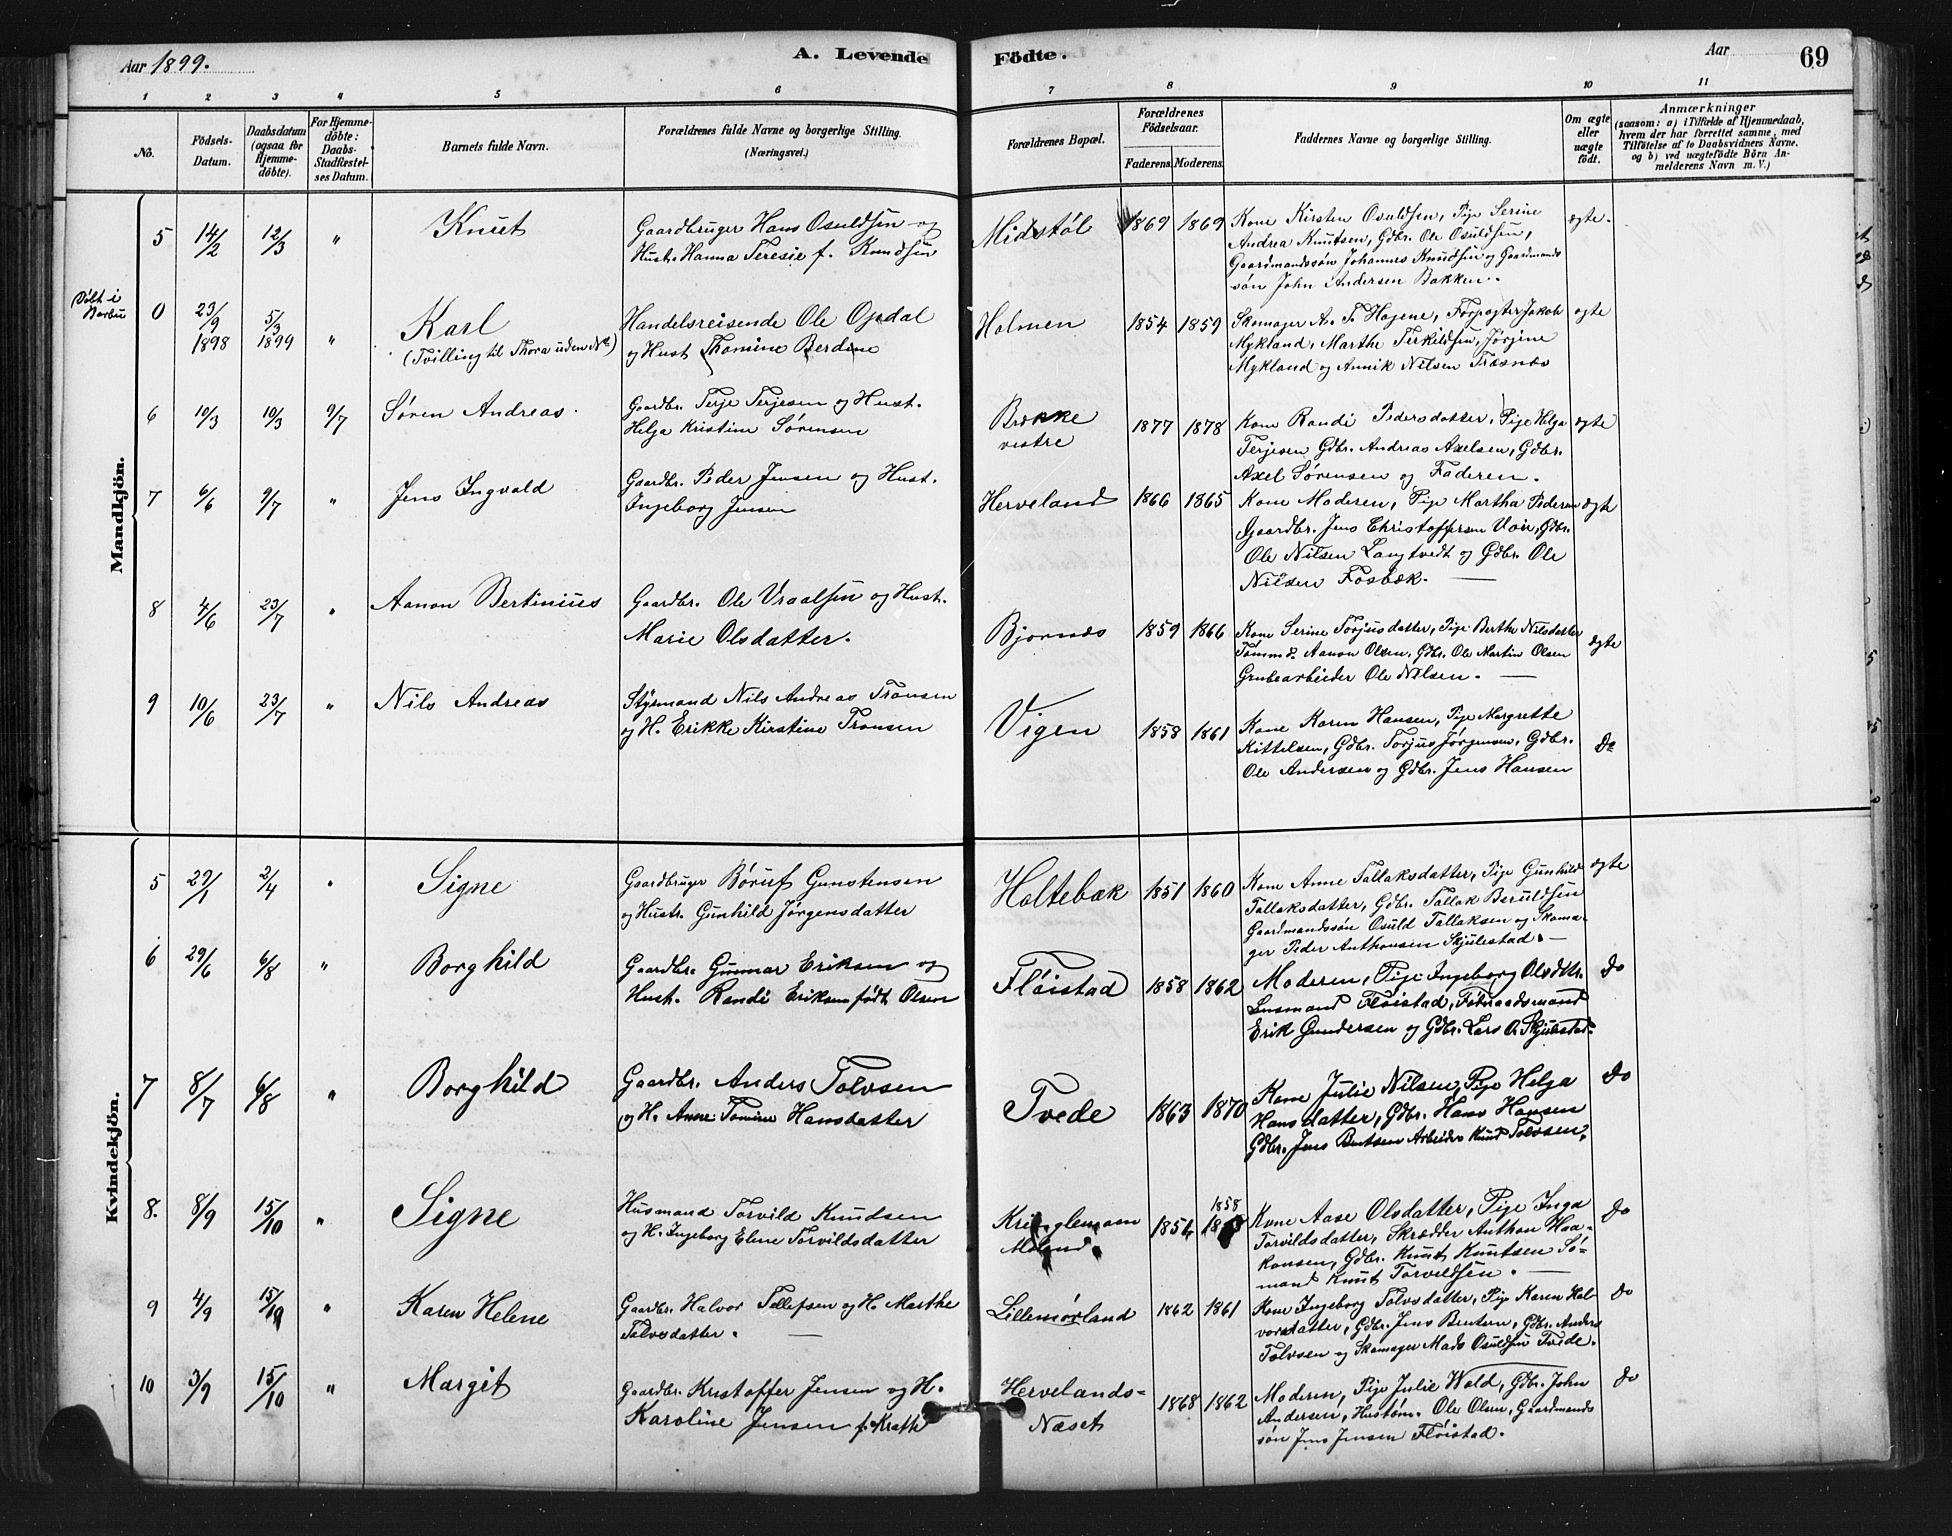 Aar 1899.
A. Levende
Födte.
Aar
69
1 2 3 4 5 6 7 8 9 10 11
No.
Födsels-
Datum.
Daabsdatum
(ogsaa for
Hjemme-
döbte).
For Hjemme-
döbte:
Daabs-
Stadfæstel-
ses Datum.
Barnets fulde Navn.
Forældrenes fulde Navne og borgerlige Stilling.
(Næringsvei.)
Forældrenes Bopæl.
Forældrenes
Födselsaar.
Faderens. Moderens.
Faddernes Navne og borgerlige Stilling.
Om ægte
eller
uægte
födt.
Anmærkninger
(saasom: a) i Tilfælde af Hjemmedaab,
hvem der har forrettet samme, med
Tilföielse af to Daabsvidners Navne.
og b) ved uægtefödte Börn An-
melderens Navn m. V.)
Mandkjön.
5 14/2 12/3 " Knut
Gaardbruger Hans Osuldsen og
Hust. Hanna Teresie f. Knudsen
Midstøl 1869 1869
Kone Kirsten Osuldsen, Pige Serine
Andrea Knutsen, Gdbr. Ole Osuldsen,
Gaardmandssøn Johannes Knudsen og Gaardmands
søn John Andersen Bakken.
ægte.
Døbt i
Barbu
0 23/9 1898 5/3 1899 " Karl
(Tvilling til Thora uden No)
Handelsreisende Ole Opdal
og Hust Thomine Berdine
Holmen 1854 1859
Skomager A. T. Hagene, Forpagter Jakob
Mykland, Marthe Terkildsen, Jørgine
Mykland og Annik Nilsen Træsnæs
ægte
6 10/3 10/3 9/7 Søren Andreas.
Gaardbr. Terje Terjesen og Hust.
Helja Kristine Sørensen
Brække
vestre
1877 1878
Kone Randi Pedersdatter, Pige Helga
Terjesen Gdbr. Andreas Axelsen, Gdbr.
Axel Sørensen og Faderen.
ægte
7 6/6 9/7 " Jens Ingvald
Gaardbr. Peder Jensen og Hust.
Ingeborg Jensen
Herveland 1866 1865
Kone Moderen, Pige Martha Pedersen
Gjaardbr. Jens Christoffersen Voie, Gdbr.
Ole Nilsen Langtvedt og Gdbr. Ole
Nilsen Fosbæk.
ægte
8 4/6 23/7 " Aanon Bertinius
Gaardbr. Ole Vraalsen og Hust.
Marie Olsdatter.
Bjørnæs 1859 1866
Kone Serine Torjusdatter, Pige Berthe Nilsdatter
Tømmd. Aanon Olsen, Gdbr. Ole Martin Olsen
Grubearbeider Ole Nilsen.
ægte
9 10/6 23/7 " Nils Andreas
Stÿrmand Nils Andreas Tronsen
og H. Erikke Kirstine Tronsen
Vigen 1858 1861
Kone Karen Hansen, Pige Margrette
Kittelsen, Gdbr. Torjus Jørgensen, Gdbr.
Ole Andersen og Gdbr. Jens Hansen
Do
Kvindekjön.
5 29/1 2/4 " Signe
Gaardbruger Børuf Gunstensen
og Hustr. Gunhild Jørgensdatter
Holtebæk 1851 1860
Kone Anne Tallaksdatter, Pige Gunhild
Tallaksdatter, Gdbr. Tallak Beruldsen
Gaardmandssøn Osuld Tallaksen og Skoma-
ger Peder Anthonsen Skjulestad.
ægte
6 29/6 6/8 " Borghild
Gaardbr. Gunnar Eriksen og
Hust. Randi Eriksen født Olsen
Fløistad 1858 1862
Moderen, Pige Ingeborg Olsdtr.
Lusmand Fløistad, Føderaadsmand
Erik Gundersen og Gdbr. Lars O. Skjulestad.
Do
7 8/7 6/8 " Borghild
Gaardbr. Anders Tolvsen
og H. Anne Tomine Hansdatter
Tvede 1863 1870
Kone Julie Nilsen, Pige Helga
Hansdatter, Gdbr. Hans Hansen
Gdbr. Jens Bentsen Arbeider Knud Tolvsen.
Do
8. 8/9 15/10 " Signe
Husmand Torvild Knudsen
og H. Ingeborg Elene Torvildsdatter
1854 1858
Kone Aase Olsdatter, Pige Inga
Torvildsdatter, Skrædder Anthon Haa-
konsen, Gdbr. Knut Knutsen Sø-
mand Knut Torvildsen.
Do
9 4/9 15/10 " Karen Helene
Gaardbr. Halvor Tellefsen og H. Marthe
Tolvsdatter.
Lillemørland 1862 1861
Kone Ingeborg Tolvsdatter, Pige Karen Hal-
vorsdatter, Gdbr. Jens Bentsen, Gdbr. Anders
Tolvsen og Skomager Mads Osuldsen Tvede.
Do
10 3/9 15/10 " Margit
Gaardbr. Kristoffer Jensen og H.
Karoline Jensen f. Kratte
Hervelands-
Næset
1868 1862
Moderen, Pige Julie Wold, Gdbr. John
Andersen, Hustøm. Ole Olsen, Gaardmands
søn Jens Jensen Fløistad.
Do